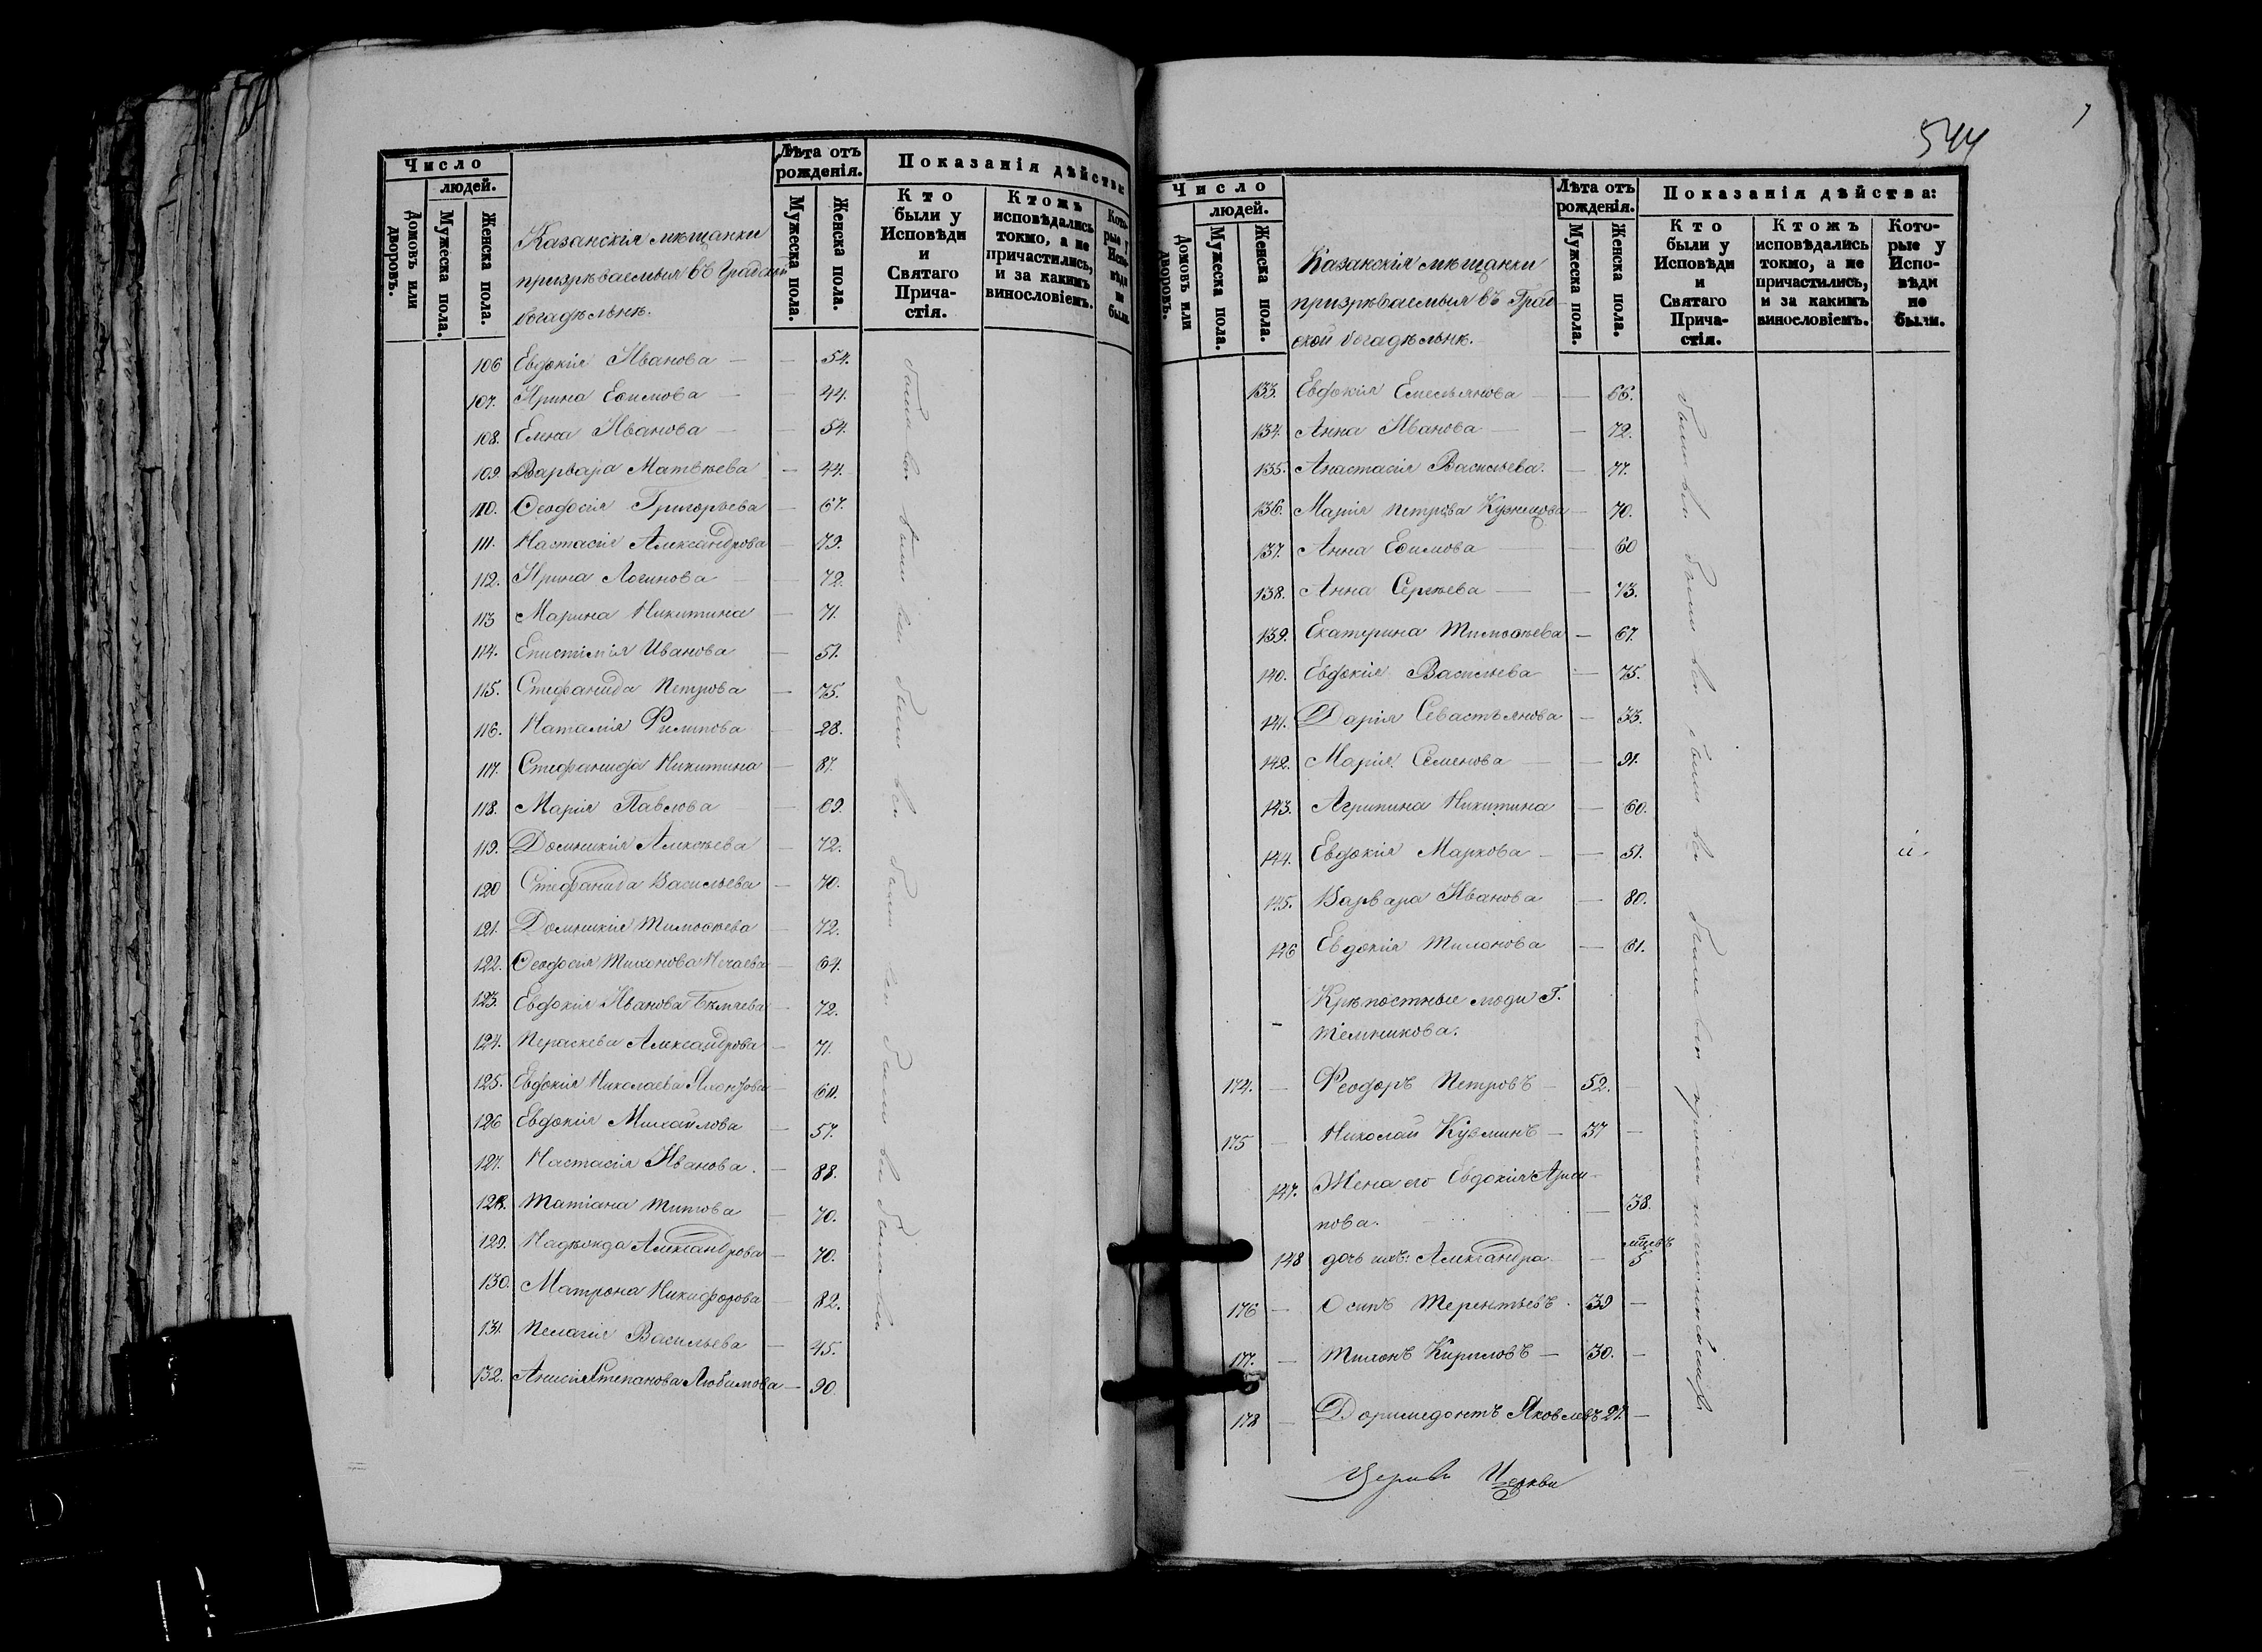 Число
людей.
Домовъ или дворовъ.
Мужеска пола.
Женска пола.
Казанскія мѣщанки
призрѣваемыя въ Градской
богадѣльнѣ.
Лѣта отъ
рожденія.
Мужеска пола.
Женска пола.
Показанія дѣйства:
Кто
были у
Исповѣди
и
Святаго
Прича-
стія.
Ктожъ
исповѣдались
токмо, а не
причастились,
и за какимъ
винословіемъ.
Кото-
рые у
Испо-
вѣди
не
были.
106 Евдокія Иванова — — 54.
107. Ирина Ефимова — — 44.
108. Елена Иванова — — 54.
109. Варвара Матѳѣева — 44.
110. Ѳеодосія Григорьева — 67.
111. Настасія Александрова — 79.
112. Ирина Логинова — — 72.
113 Марина Никитина — 71.
114. Епистимія Иванова — 51.
115. Стефанида Петрова — 75.
116. Наталія Филипова — 28.
117. Стефанида Никитина — 87.
118. Марія Павлова — 69.
119. Домникія Алексѣева — 72.
120 Стефанида Васильева — 70.
121. Домникія Тимоѳеева — 72.
122. Ѳеодосія Тихонова Нечаева — 64.
123. Евдокія Иванова — 72.
124. Пераскева Александрова — 71.
125. Евдокія Николаева — 60.
126 Евдокія Михайлова — 57.
127. Настасія Иванова. — 88.
128. Татіана Титова — 70.
129. Надежда Александрова — 70.
130. Матрона Никифорова — 82.
131. Пелагія Васильева — 45.
132. Анисія Степанова Любимова — 90.
были вси были вси были вси были вси были вси были вси
544
Число
людей.
Домовъ или дворовъ.
Мужеска пола.
Женска пола.
Казанскія мѣщанки
призрѣваемыя въ Град-
ской богадѣльнѣ.
Лѣта отъ
рожденія.
Мужеска пола.
Женска пола.
Показанія дѣйства:
Кто
были у
Исповѣди
и
Святаго
Прича-
стія.
Ктожъ
исповѣдались
токмо, а не
причастились,
и за какимъ
винословіемъ.
Кото-
рые у
Испо-
вѣди
не
были.
133. Евдокія Емельянова — — 66.
134. Анна Иванова — — 72.
135. Анастасія Васильева. — 77.
136. Марія Петрова Кузнецова — 70.
137. Анна Ефимова — — 60
138. Анна Сергѣева — — 73.
139. Екатерина Тимоѳеева — 67.
140. Евдокія Васильева — 75.
141. Дарія Севастьянова — 33.
142. Марія Семенова — — 91.
143. Агрипина Никитина — 60.
144. Евдокія Маркова — — 51.
145. Варвара Иванова — 80.
146 Евдокія Тихонова — 61.
Крѣпостные люди Г.
Темникова.
174. — Феодоръ Петровъ — 52. —
175 — Николай Кузминъ — 37 —
147. Жена его Евдокія
пова. — 38.
148 дочь ихъ: Александра — мцевъ 5
176 — Осипъ Терентьевъ. 39 —
177. — Тихонъ Кириловъ — 30. —
178 — Доримедонтъ Яковлевъ 27. —
были вси были вси были вси были вси кромѣ
Церкви